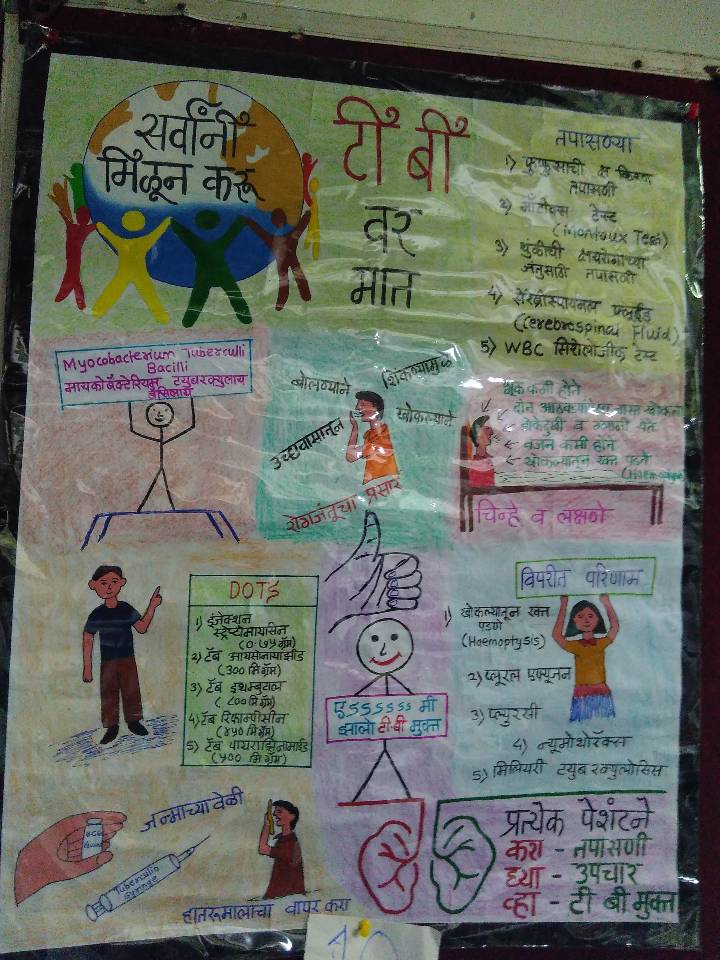 सर्वांनी
मिळून करू
टी बी
वर
मात
तपासण्या
1) फुफ्फुसाची क्ष किरण
तपासणी
2) मॉंटोक्स टेस्ट
(Montoux Test)
3) थुंकीची क्षयरोगाच्या
जंतुसाठी तपासणी
4) सेरेब्रोस्पायनल फ्लुईड
(Cerebrospinal Fluid)
5) WBC सिरोलोजीक टेस्ट
Myocobacterium Tuberculli
Bacilli
मायकोबॅक्टेरियम ट्युबरक्युलाय
बॅसिलाय
बोलण्याने
शिंकण्यामुळे
उच्छवासातून
खोकल्याने
रोगजंतूचा प्रसार
भूक कमी होणे
दोन आठवड्यापेक्षा जास्त खोकला
डोकेदुखी व
वजन कमी होणे
खोकल्यातून रक्त पडणे
चिन्हे व लक्षणे
DOTS
1) इंजेक्शन
स्ट्रेप्टोमायसिन
(0.75 ग्रॅम)
2) टॅब आयसोनायाझीड
(300 मि ग्रॅम)
3) टॅब इथम्बुटाल
(800 मि ग्रॅम)
4) टॅब रिफाम्पीसीन
(४५0 मि ग्रॅम)
5) टॅब पायराझिनामाईड
(५00 मि ग्रॅम)
एssssss मी
झालो टी.बी मुक्त
विपरीत परिणाम
1) खोकल्यातून रक्त
पडणे
(Haemoptysis)
2) प्लूरल एफ्यूजन
3) प्ल्युरसी
4) न्यूमोथोरॅक्स
5) मिलियरी ट्युबरक्युलोसिस
जन्माच्या वेळी
BCG
Tuberculin
Syringe
हातरूमालाचा वापर करा
प्रत्येक पेशंटने
करा - तपासणी
घ्या - उपचार
व्हा - टी बी मुक्त
10